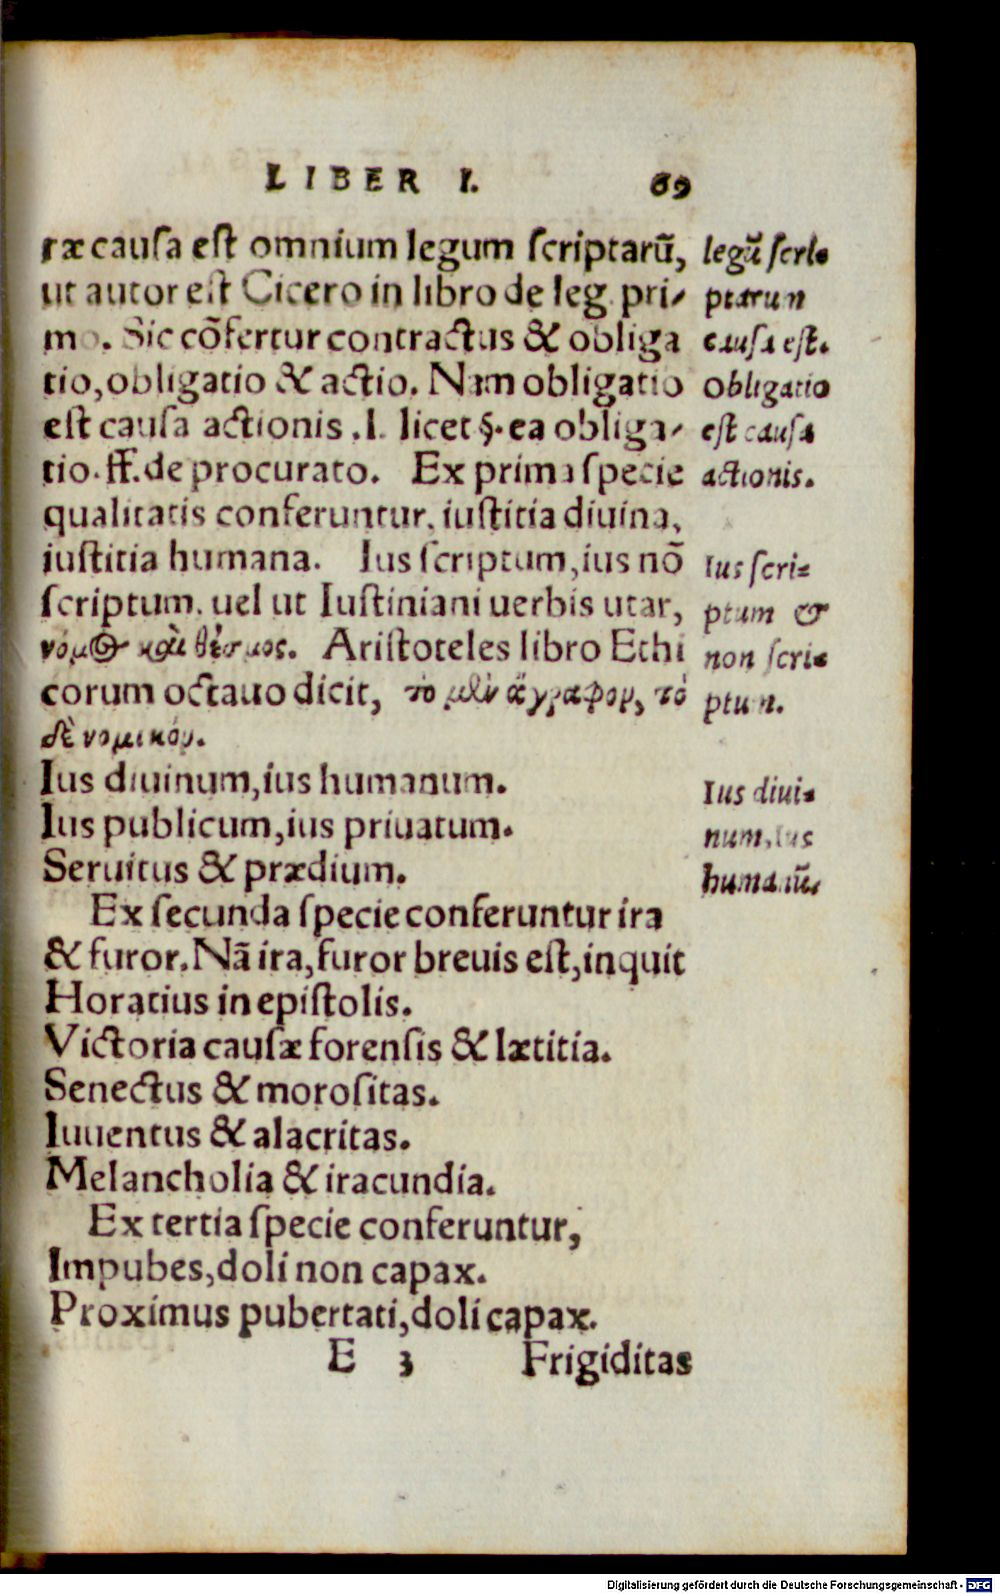 LIBER I. 69
ræ causa est omnium legum scriptarũ,
ut autor est Cicero in libro de leg. pri-
mo. Sic cõfertur contractus & obliga
tio, obligatio & actio. Nam obligatio
est causa actionis .l. licet §. ea obliga-
tio. ff. de procurato. Ex prima specie
qualitatis conferuntur, iustitia diuina,
iustitia humana. Ius scriptum, ius nõ
scriptum. uel ut Iustiniani uerbis utar,
νόμος καὶ θέσμος. Aristoteles libro Ethi
corum octauo dicit, το μὲν ἄγραφον, τό
δὲ νομικόν.
Ius diuinum, ius humanum.
Ius publicum, ius priuatum.
Seruitus & prædium.
Ex secunda specie conferuntur ira
& furor. Nã ira, furor breuis est, inquit
Horatius in epistolis.
Victoria causæ forensis & lætitia.
Senectus & morositas.
Iuuentus & alacritas.
Melancholia & iracundia.
Ex tertia specie conferuntur,
Impubes, doli non capax.
Proximus pubertati, doli capax.
E 3 Frigiditas
legũ scri-
ptarun
causa est.
Obligatio
est causa
actionis.
Ius scri-
ptum &
non scri-
ptum.
Ius diui-
num, ius
humanũ.
Digitalisierung gefördert durch die Deutsche Forschungsgemeinschaft - DFG